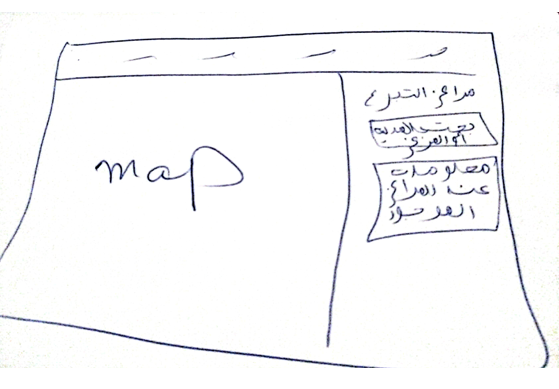 map
مراكز التبرع
بحث المدينة
أو المركز
معلومات
عن المراكز
الموجودة